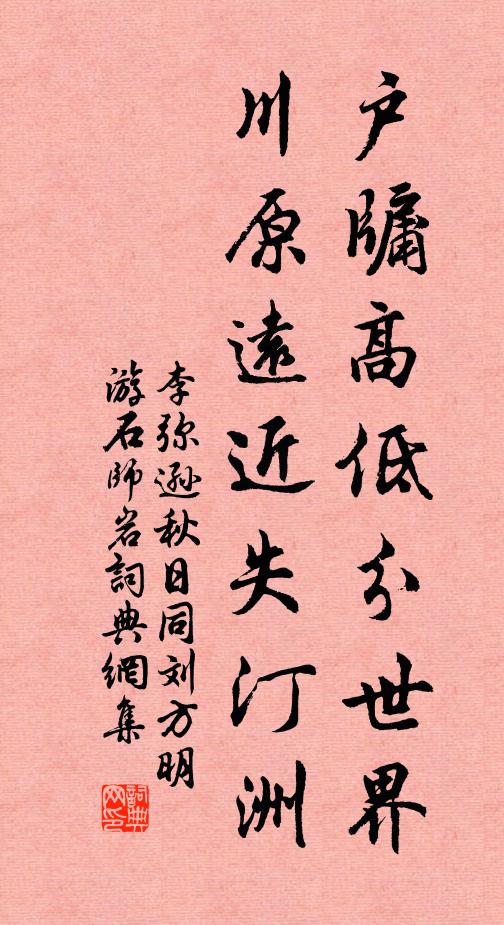 户牖高低分世界
川原遠近失汀洲
李弥遜秋日同刘方明
游石師岩詞典網集
詞典网印